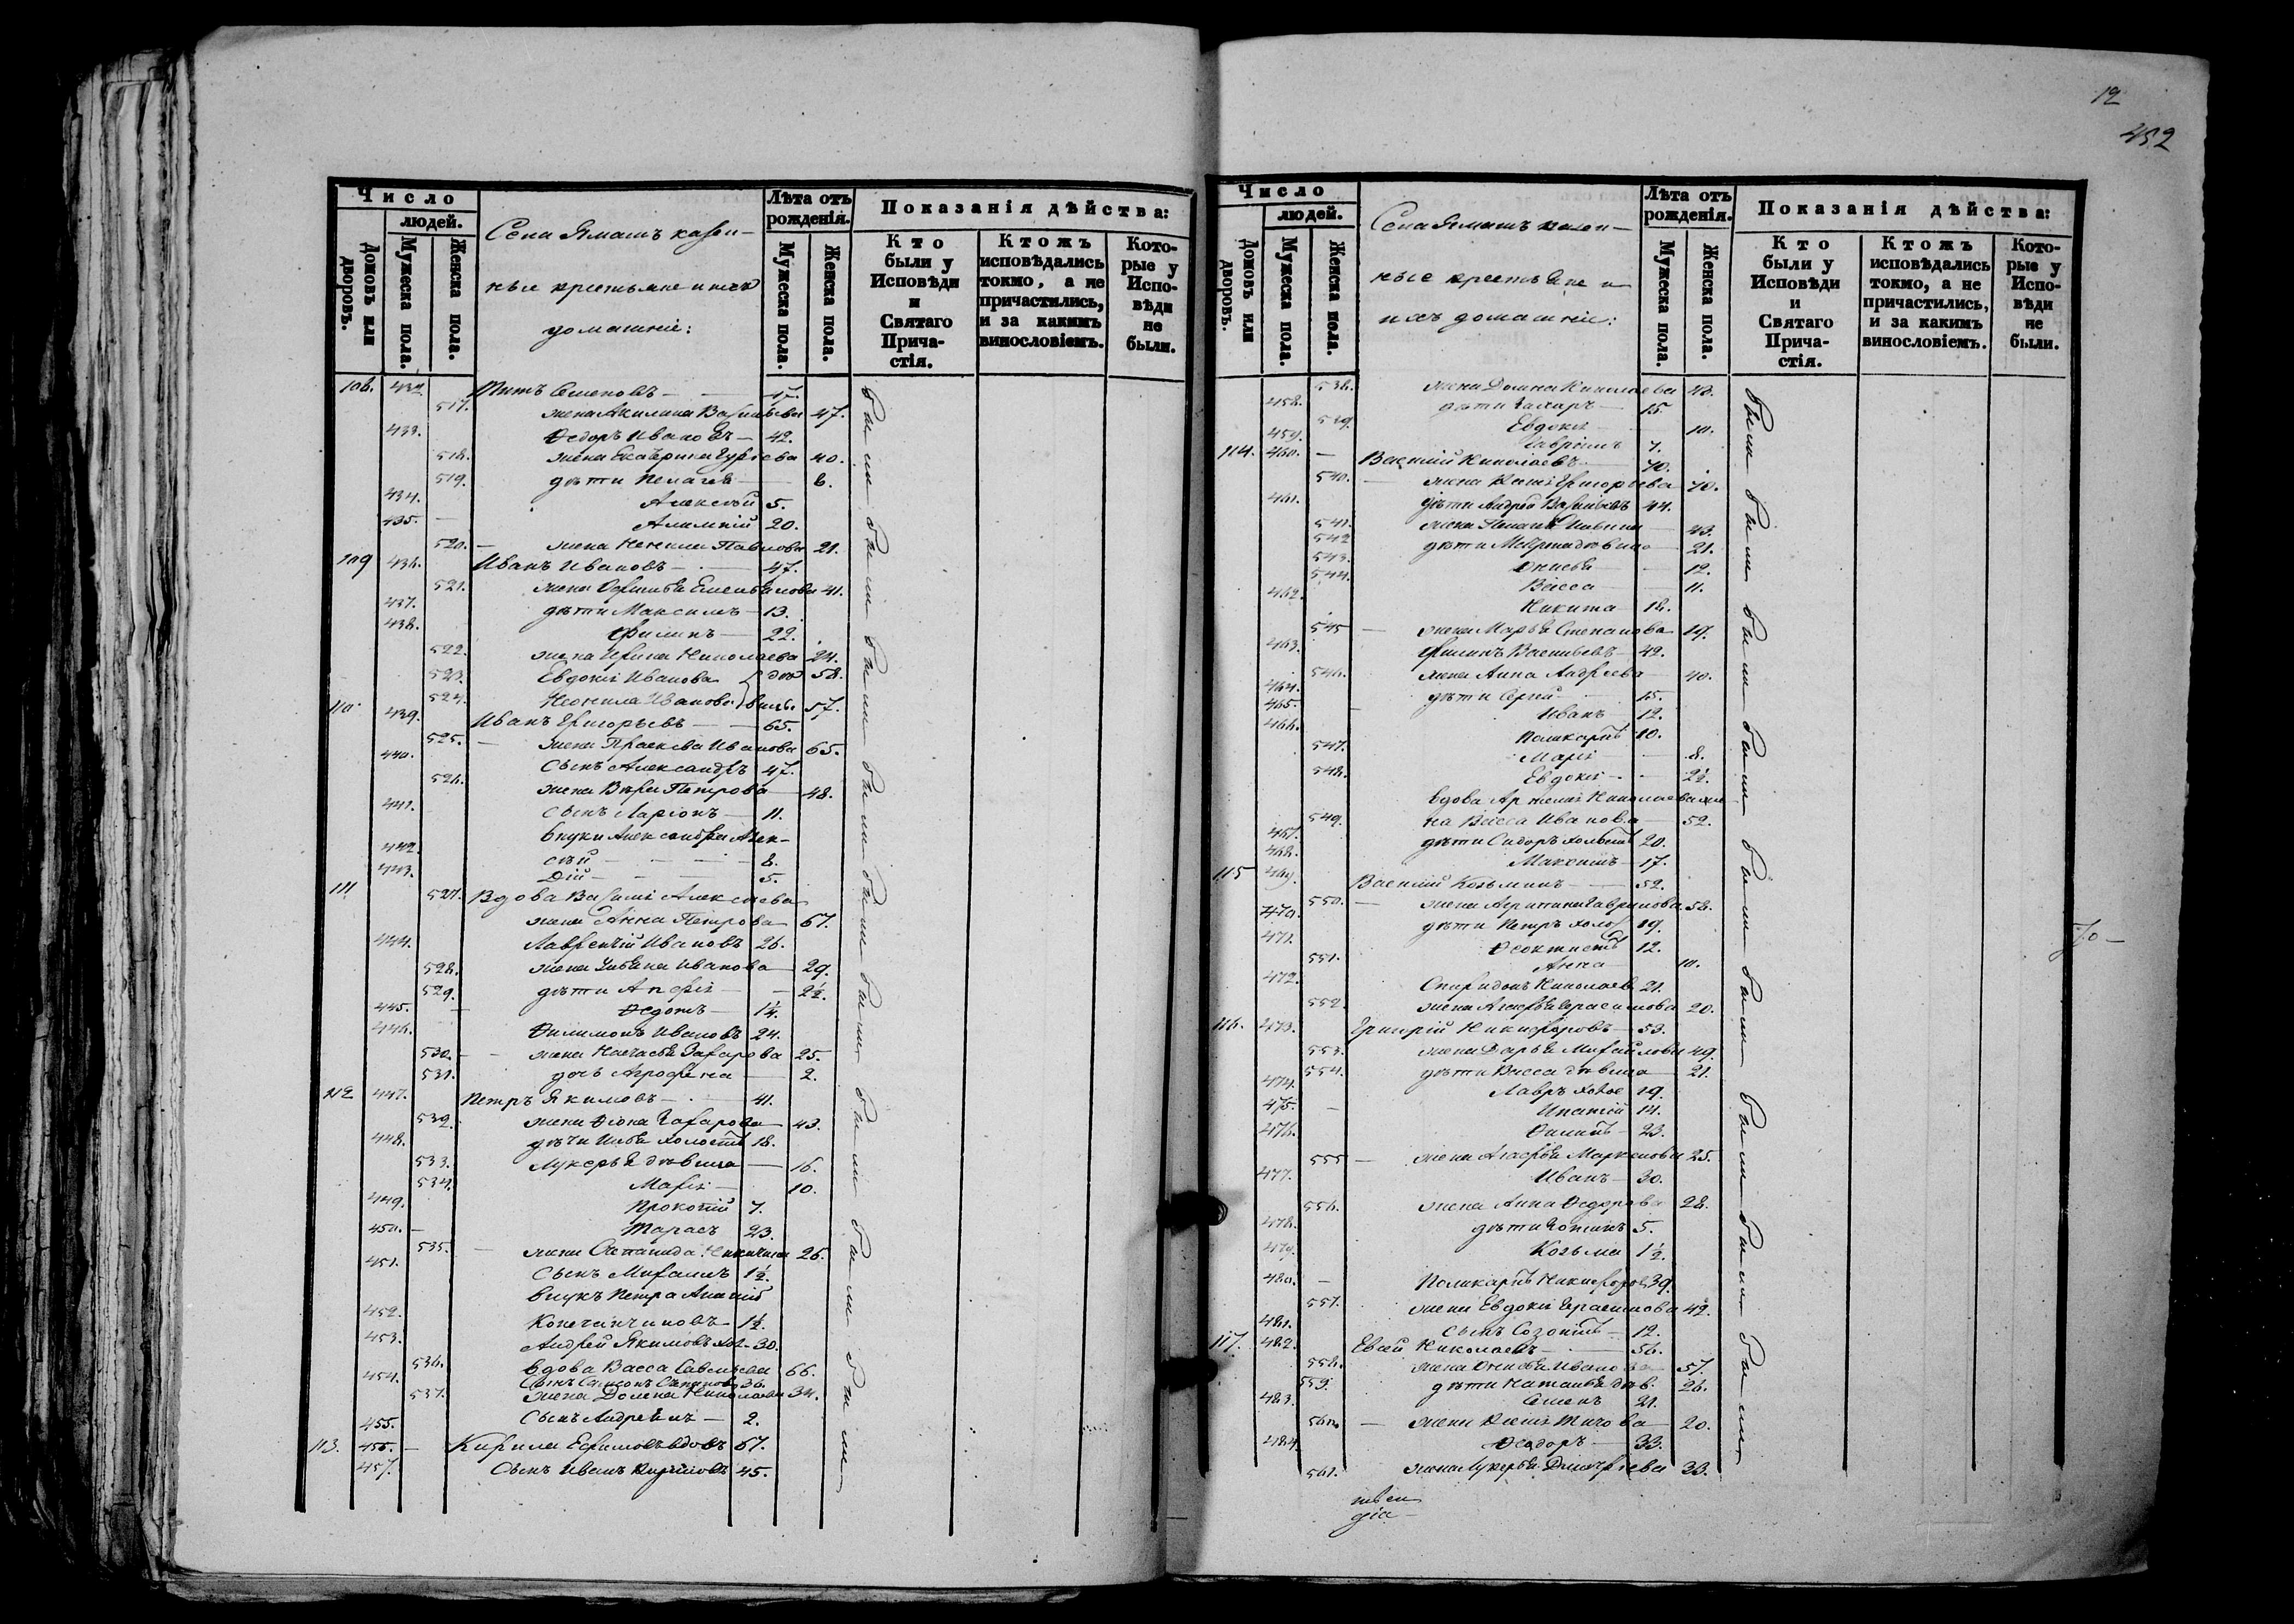 12
452
Число
людей.
Домовъ или дворовъ.
Мужеска пола.
Женска пола.
Села Ямашъ казен-
ные крестьяне и ихъ
домашніе:
Лѣта отъ рожденія.
Мужеска пола.
Женска пола.
Показанія дѣйства:
Кто были у Исповѣди и Святаго Прича-стія.
Ктожъ исповѣдались токмо, а не причастились, и за какимъ винословіемъ.
Кото-рые у Испо-вѣди не были.
108. 432. Титъ Семеновъ 47.
517. жена Акилина Васильева 47.
433. Ѳедоръ Ивановъ 42.
518. жена Екатерина Гурьева 40.
519. дѣти Пелагея 6.
434. Алексѣй 5.
435. Алимпій 20.
520. жена Ненила Павлова 21.
109 436. Иванъ Ивановъ 47.
521. жена Емельянова 41.
437. дѣти Максимъ 13.
438. Филипъ 22.
522. жена Ирина Николаева 24.
523. Евдокія Иванова 58.
524. Неонила Иванова 57.
110 439. Иванъ Григорьевъ 65.
525. жена Праскева Иванова 65.
440. сынъ Александръ 47.
526. жена Вѣра Петрова 48.
441. сынъ Ларіонъ 11.
внуки Александра Алек-
442. сѣй 8.
443. Дій 5.
111 527. Вдова Алексеева
жена Анна Петрова 67.
444. Лаврентій Ивановъ 26.
528. жена Ульяна Иванова 29.
529. дѣти 2½.
445. Ѳедотъ 1½.
446. Филимонъ Ивановъ 24.
530. жена Настасья Захарова 25.
531. дочь Агрофена 2.
112 447. Петръ Якимовъ 41.
532. жена Захарова 43.
448. дѣти Илья холостъ 18.
533. Лукерья дѣвица 16.
534. Марія 10.
449. Прокопій 7.
450. Тарасъ 23.
535. жена Степанида Никитина 26.
451. сынъ Михаилъ 1½.
внукъ Петра
452. 1½.
453. Андрей Якимовъ хол. 30.
536. вдова Васса Савельева 66.
454. сынъ Самсонъ 36.
537. жена Домна Николаева 34.
455. сынъ Андреянъ 2.
113. 456. Кирила Ефимовъ вдовъ 67.
457. сынъ Иванъ Кириловъ 45.
были были были были были были были были были
Число
людей.
Домовъ или дворовъ.
Мужеска пола.
Женска пола.
Села Ямашъ казен-
ные крестьяне и
ихъ домашніе:
Лѣта отъ рожденія.
Мужеска пола.
Женска пола.
Показанія дѣйства:
Кто были у Исповѣди и Святаго Прича-стія.
Ктожъ исповѣдались токмо, а не причастились, и за какимъ винословіемъ.
Кото-рые у Испо-вѣди не были.
538. жена Домна Николаева 43.
458. дѣти Захаръ 15.
539. Евдокія 10.
459. Гавріилъ 7.
114. 460. Василій Николаевъ 70.
540. жена Григорьева 70.
461. дѣти Андрей Васильевъ 44.
541. жена Пелагея Ильина 43.
542 дѣти Матрена дѣвица 21.
543. Онисья 12.
544. Васса 11.
462. Никита 18.
545 жена Марья Степанова 19.
463. Филипъ Васильевъ 42.
546. жена Анна Андреева 40.
464. дѣти Сергій 15.
465. Иванъ 12.
466. Поликарпъ 10.
547. Марія 8.
548. Евдокія 2½.
вдова Николаева же-
549. на Васса Иванова 52.
467. дѣти Сидоръ холостъ 20.
468. Максимъ 17.
115 469. Василій Козьминъ 52.
550. жена Агрипина Гаврилова 58.
470. дѣти Петръ холо 19.
471. Ѳеоктистъ 12.
551. Анна 10.
472. Спиридонъ Николаев 21.
552. жена Агафья Герасимова 20.
116. 473. Григорій Никифоровъ 53.
553. жена Дарья Михайлова 49.
554. дѣти Васса дѣвица 21.
474. Лавръ 19.
475. Ипатій 14.
476. 23.
555 жена Агафья Маркелова 25.
477. Иванъ 30.
556. жена Анна Ѳедорова 28.
478. дѣти 5.
479. Козьма 1½.
480. Поликарпъ Никифоров 39.
557. жена Евдокія Герасимова 42.
481. сынъ Созонтъ 12.
117. 482. Евсѣй Николаевъ 56.
558. жена Онисья Иванова 57.
559. дѣти Наталья дѣв. 26.
483. Семенъ 21.
560. жена Титова 20.
484. Ѳеодоръ 33.
561. жена Лукерья Дмитріева 33.
были были были были были были были были были были были
70